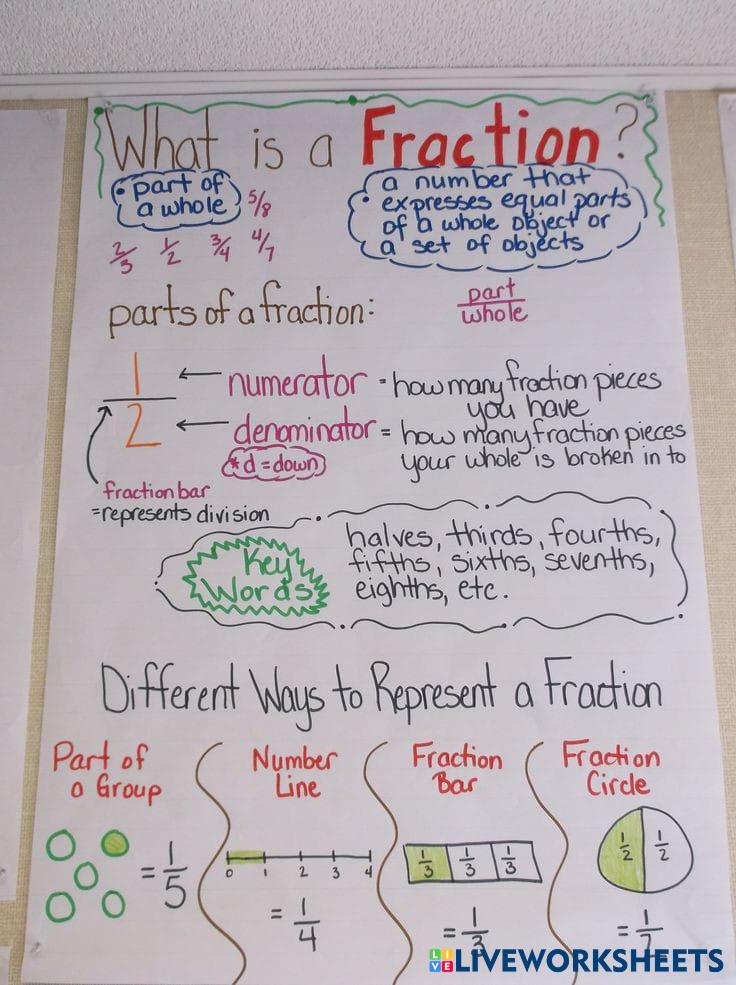 What is a Fraction?
• part of
a whole
5/8
2/3 1/2 3/4 4/7
a number that
• expresses equal parts
of a whole object or
a set of objects
parts of a fraction:
part
whole
1
2
numerator = how many fraction pieces
you have
denominator = how many fraction pieces
your whole is broken in to
*d = down
fraction bar
=represents division
Key
Words
halves, thirds, fourths,
fifths, sixths, sevenths,
eighths, etc.
Different Ways to Represent a Fraction
Part of
a Group
= 1/5
Number
Line
0 1 2 3 4
= 1/4
Fraction
Bar
1/3 1/3 1/3
= 1/3
Fraction
Circle
1/2 1/2
= 1/2
LIVE LIVEWORKSHEETS